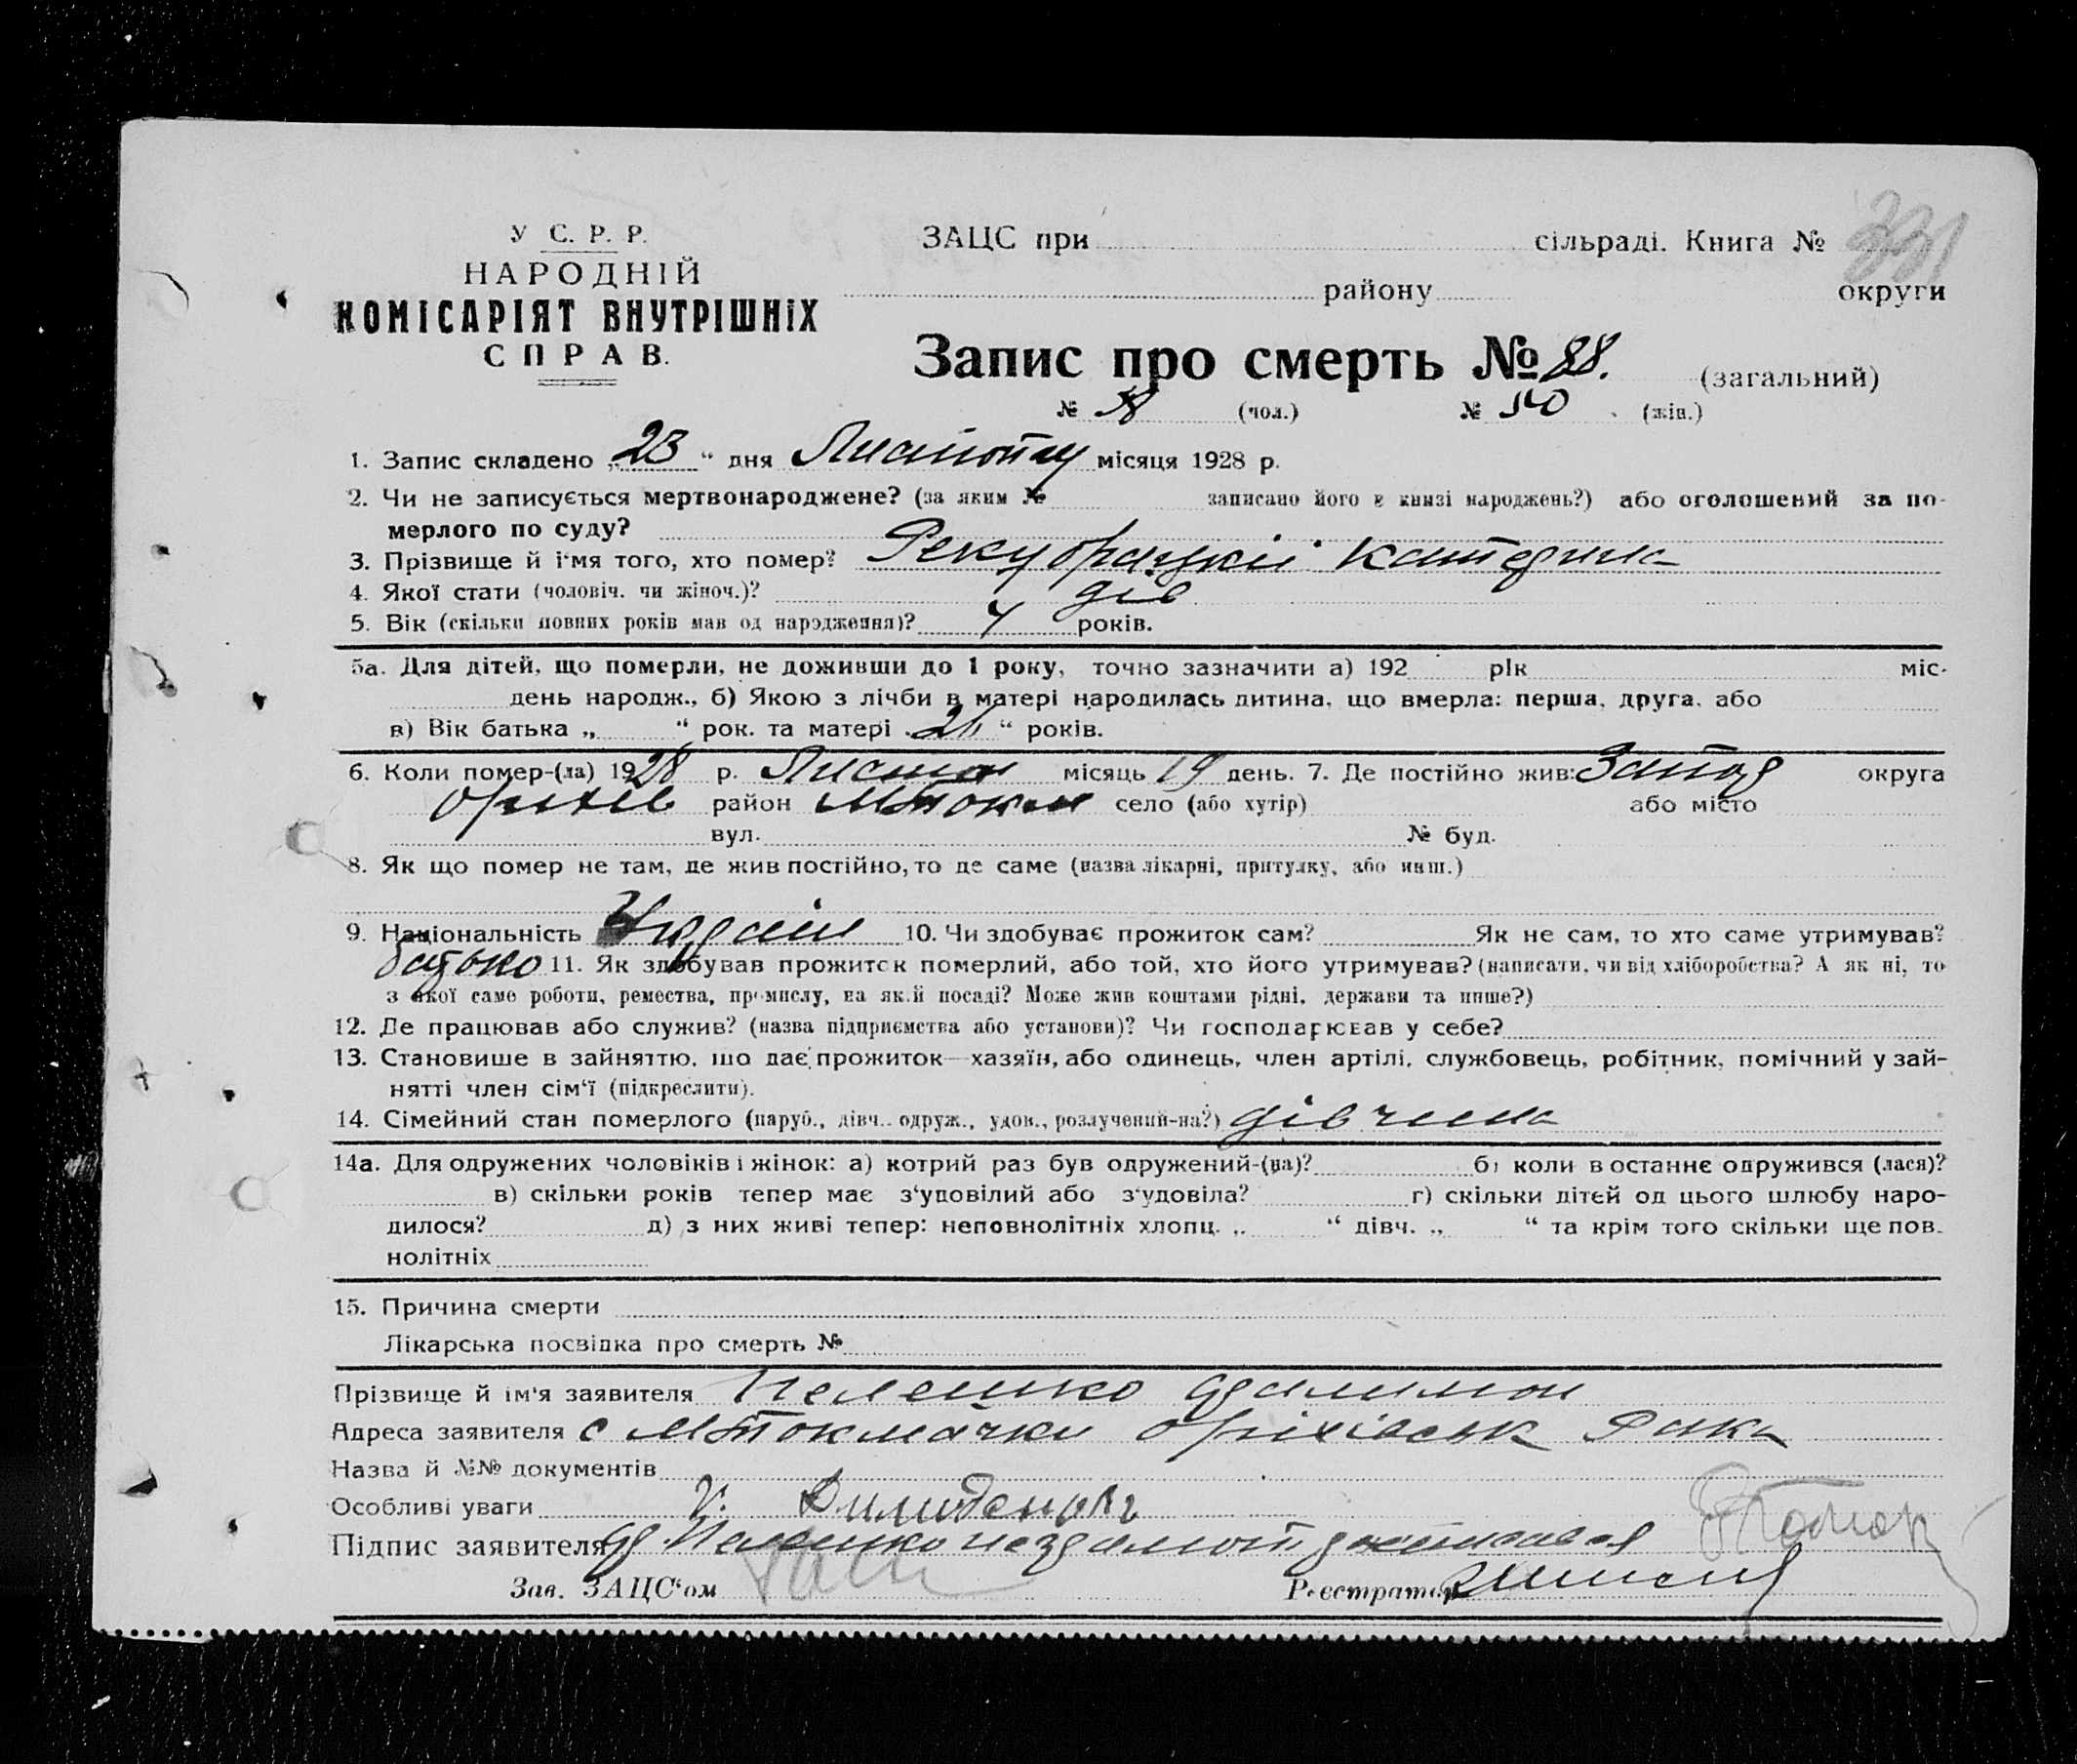 331
У С. Р. Р.
НАРОДНІЙ
КОМІСАРІЯТ ВНУТРІШНІХ
СПРАВ.
ЗАЦС при сільраді. Книга №
району округи
Запис про смерть № 88. (загальний)
№ (чол.) № 40 (жін.)
1. Запис складено „23“ дня Листопад місяця 1928 р.
2. Чи не записується мертвонароджене? (за яким № записано його в книзі народжень?) або оголошений за по-
мерлого по суду?
3. Прізвище й і'мя того, хто помер? Катерина
4. Якої стати (чоловіч. чи жіноч.)? дів
5. Вік (скільки повних років мав од народження)? років.
5а. Для дітей, що померли, не доживши до 1 року, точно зазначити а) 192 рік міс-
день народж., б) Якою з лічби в матері народилась дитина, що вмерла: перша, друга, або
в) Вік батька „ “ рок. та матері „ “ років.
6. Коли помер-(ла) 1928 р. Листоп місяць 19 день. 7. Де постійно жив: Запор округа
Оріхів район МТокм село (або хутір) або місто
вул. № буд.
8. Як що помер не там, де жив постійно, то де саме (назва лікарні, притулку, або инш.)
9. Національність Україн 10. Чи здобуває прожиток сам? Як не сам, то хто саме утримував?
батько 11. Як здобував прожиток померлий, або той, хто його утримував? (написати, чи від хліборобства? А як ні, то
з якої саме роботи, ремества, промислу, на якій посаді? Може жив коштами рідні, держави та инше?)
12. Де працював або служив? (назва підприємства або установи)? Чи господарював у себе?
13. Становище в зайняттю, що дає прожиток—хазяїн, або одинець, член артілі, службовець, робітник, помічний у зай-
нятті член сім'ї (підкреслити).
14. Сімейний стан померлого (паруб., дівч. одруж., удов., розлучений-на?) дівчина
14а. Для одружених чоловіків і жінок: а) котрий раз був одружений-(на)? б) коли в останнє одружився (лася)?
в) скільки років тепер має з'удовілий або з'удовіла? г) скільки дітей од цього шлюбу наро-
дилося? д) з них живі тепер: неповнолітніх хлопц. „ “ дівч. „ “ та крім того скільки ще пов-
нолітніх
15. Причина смерти
Лікарська посвідка про смерть №
Прізвище й ім'я заявителя Пелешко
Адреса заявителя с МТокмачки Оріхівськ Р-на
Назва й №№ документів
Особливі уваги
Підпис заявителя
Зав. ЗАЦС'ом Реєстратор